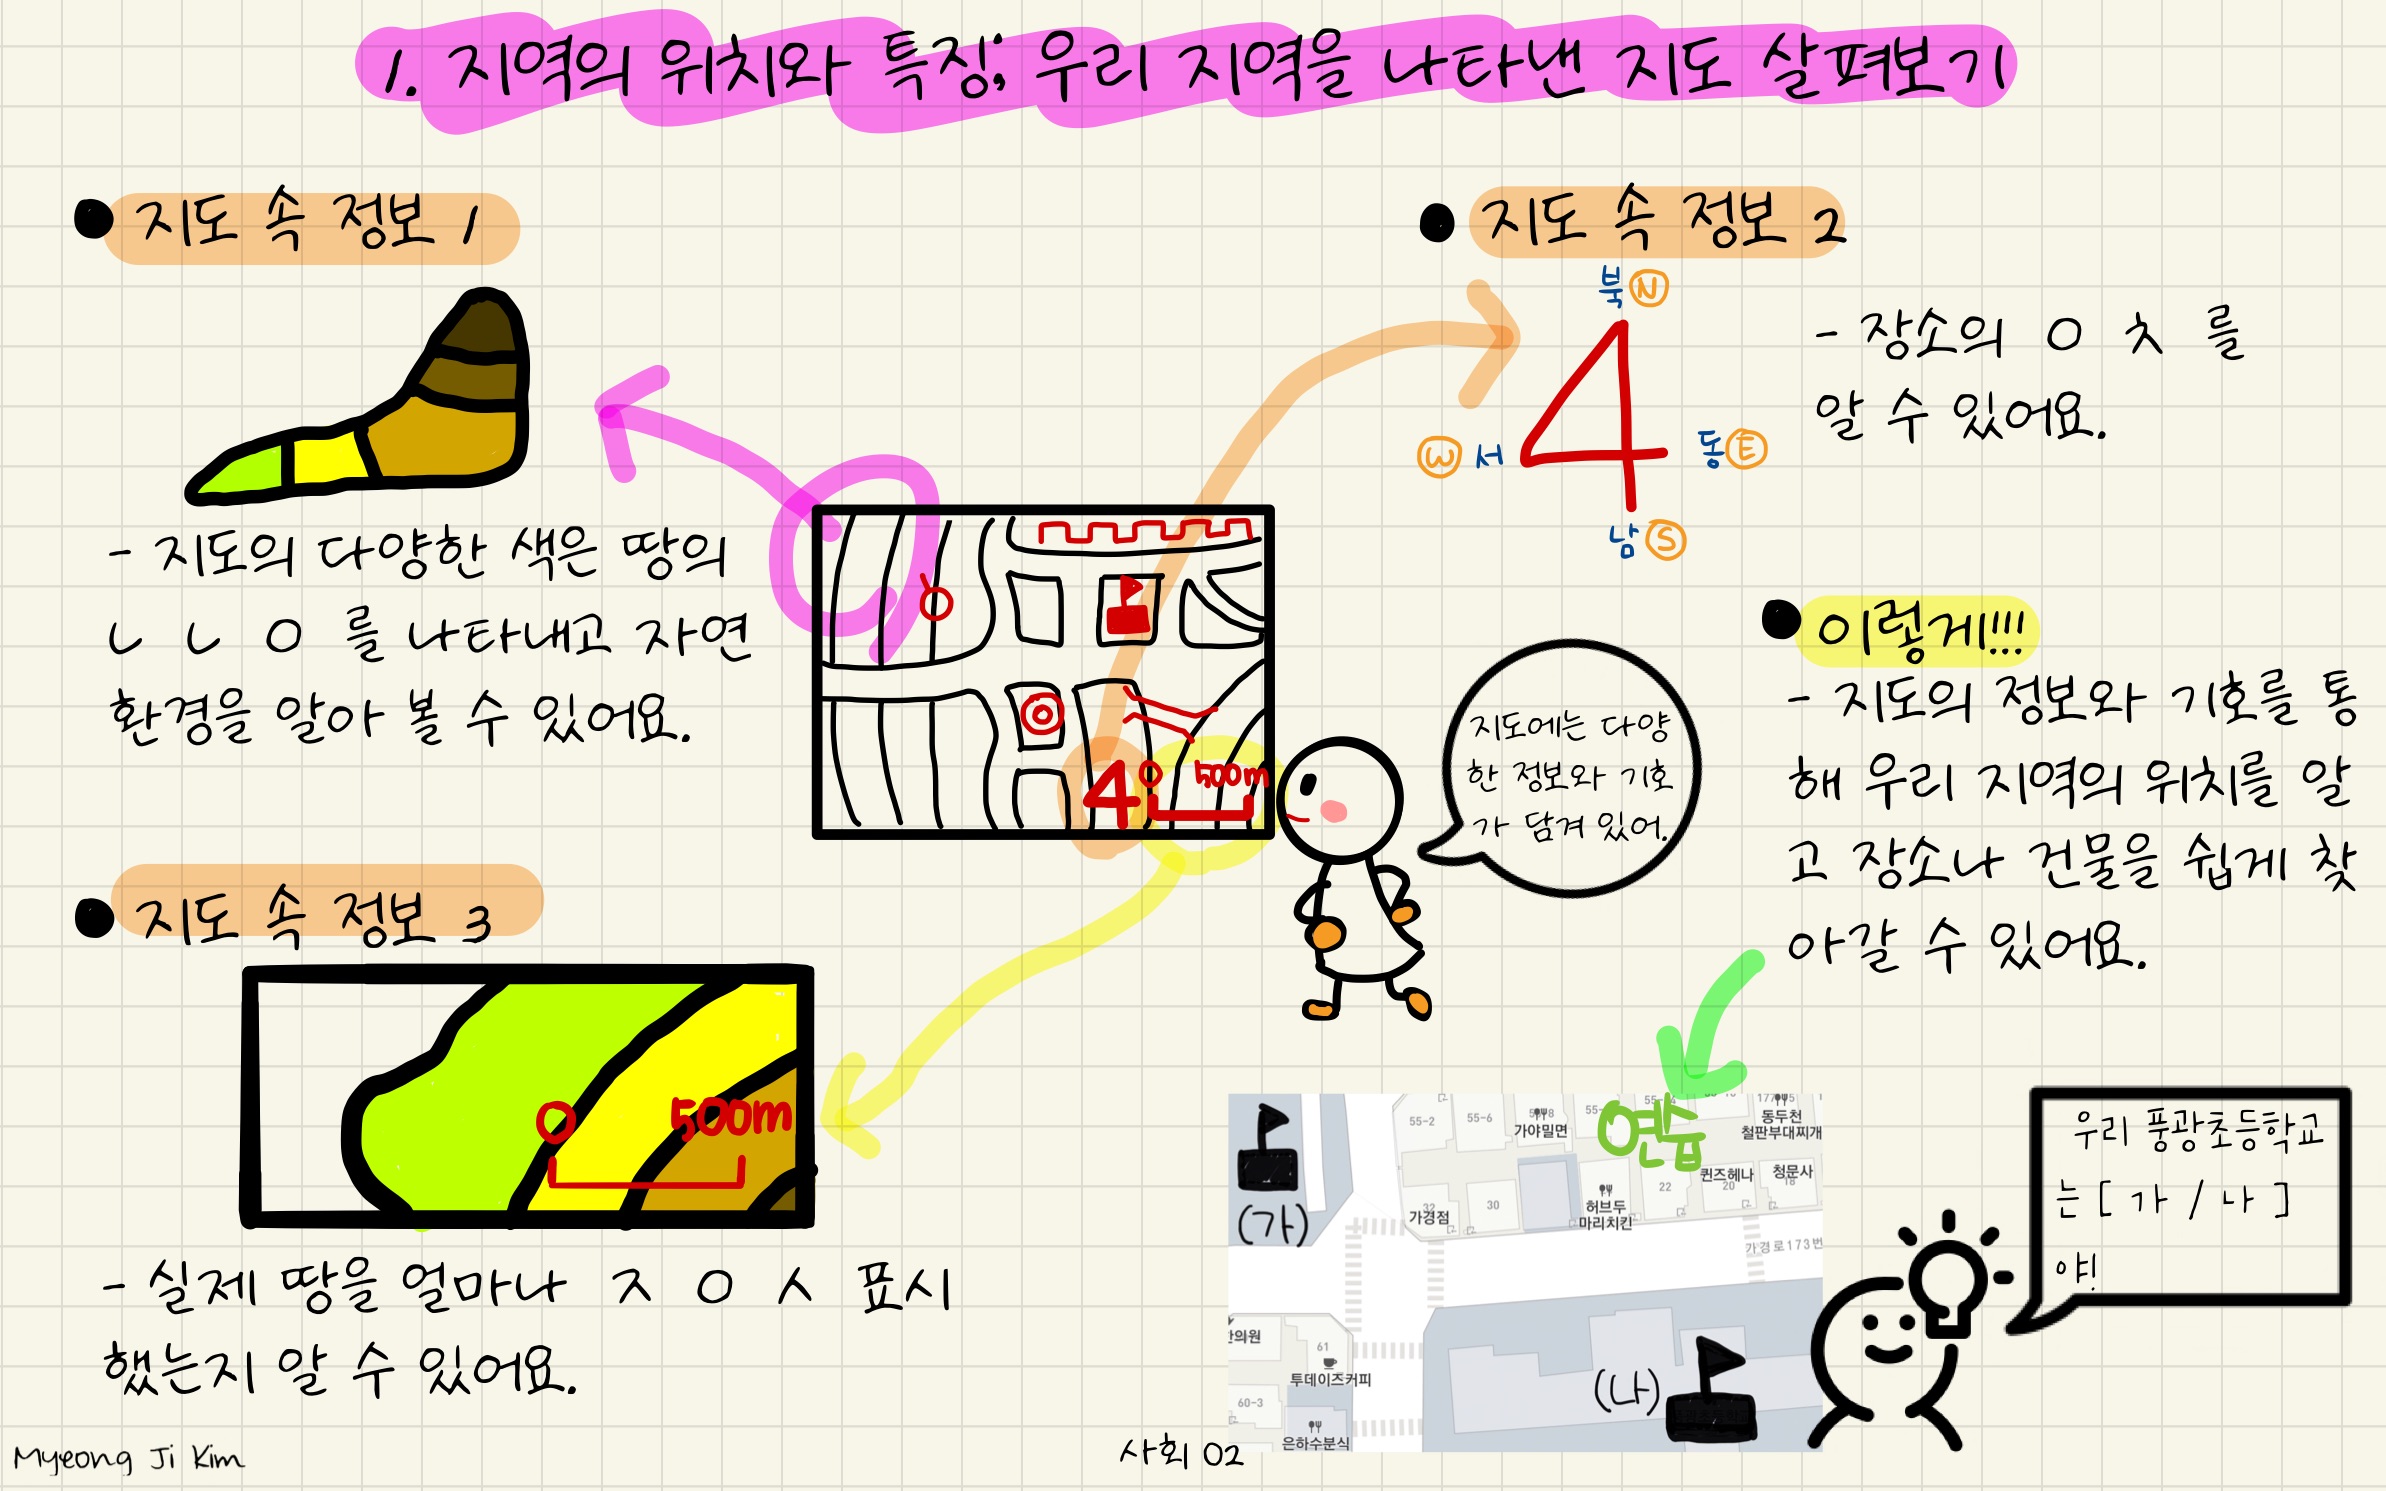 1. 지역의 위치와 특징; 우리 지역을 나타낸 지도 살펴보기
지도 속 정보 1
- 지도의 다양한 색은 땅의
ㄴ ㄴ ㅇ 를 나타내고 자연
환경을 알아 볼 수 있어요.
지도 속 정보 2
북 N
W 서
동 E
남 S
- 장소의 ㅇ ㅊ 를
알 수 있어요.
4 0 500m
지도에는 다양
한 정보와 기호
가 담겨 있어.
이렇게!!!
- 지도의 정보와 기호를 통
해 우리 지역의 위치를 알
고 장소나 건물을 쉽게 찾
아갈 수 있어요.
지도 속 정보 3
0 500m
- 실제 땅을 얼마나 ㅈ ㅇ ㅅ 표시
했는지 알 수 있어요.
연습
(가)
55-2
55-6
가야밀면
동두천
철판부대찌개
퀸즈헤나
청문사
22
20
18
32
가경점
30
허브두
마리치킨
가경로173번
한의원
61
투데이즈커피
60-3
은하수분식
(나)
우리 풍광초등학교
는 [ 가 / 나 ]
야!
Myeong Ji Kim
사회 02